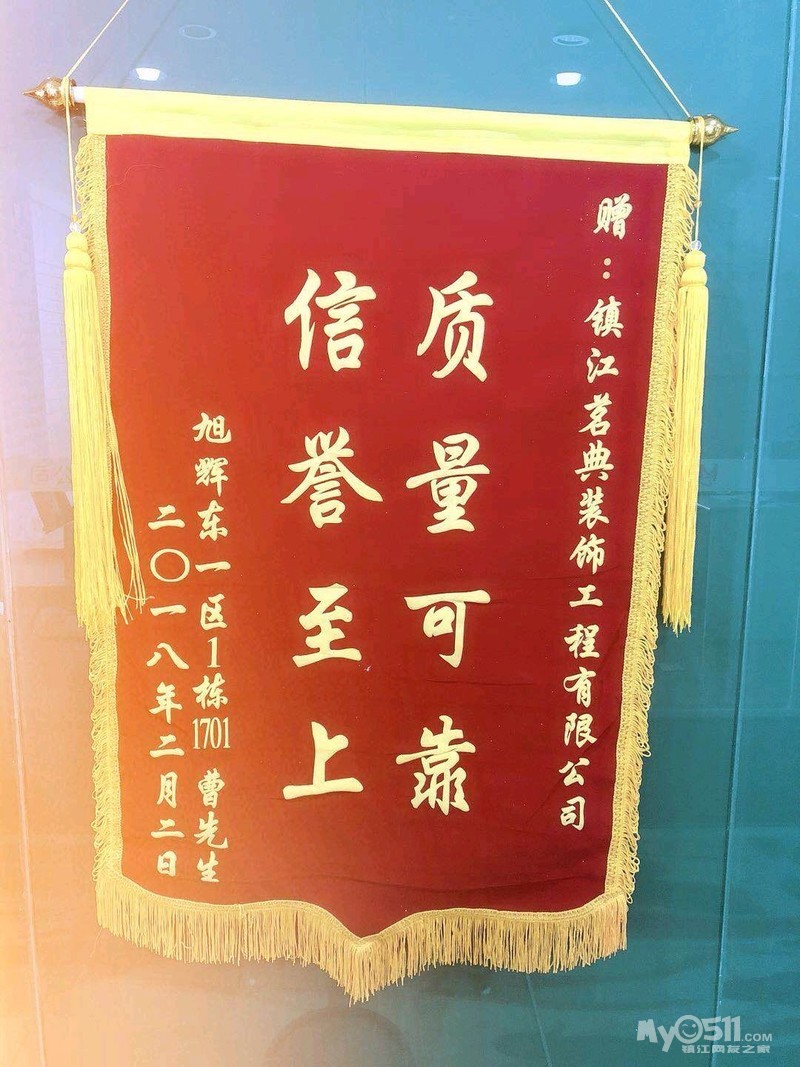 赠：镇江茗典装饰工程有限公司
质量可靠
信誉至上
旭辉东一区1栋1701 曹先生
二〇一八年二月二日
My0511.COM
镇江网友之家